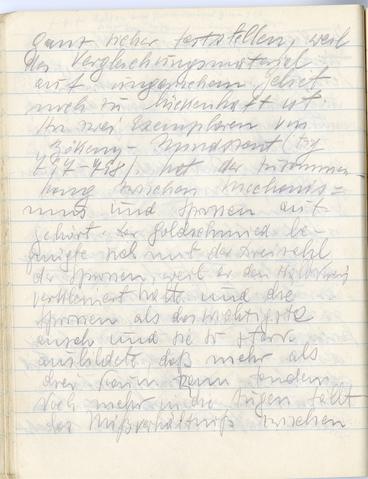 ganz sicher feststellen, weil
das Vergleichungsmaterial
auf ungarischem Gebiet
noch zu lückenhaft ist.
An zwei Exemplaren von
Zötény - Pusztaszent (Fig
797-798). hat der Zusammen
hang zwischen Mechanis-
mus und Sprossen auf-
gehört. Der Goldschmied be-
gnügte sich mit der Dreizahl
der Sprossen, weil er den Halbkreis
verkleinert hatte und die
Sprossen als das wichtigste
ansah und sie so stark
ausbildete, daß mehr als
drei kaum
Noch mehr in die Augen fällt
das Mißverhältniß zwischen